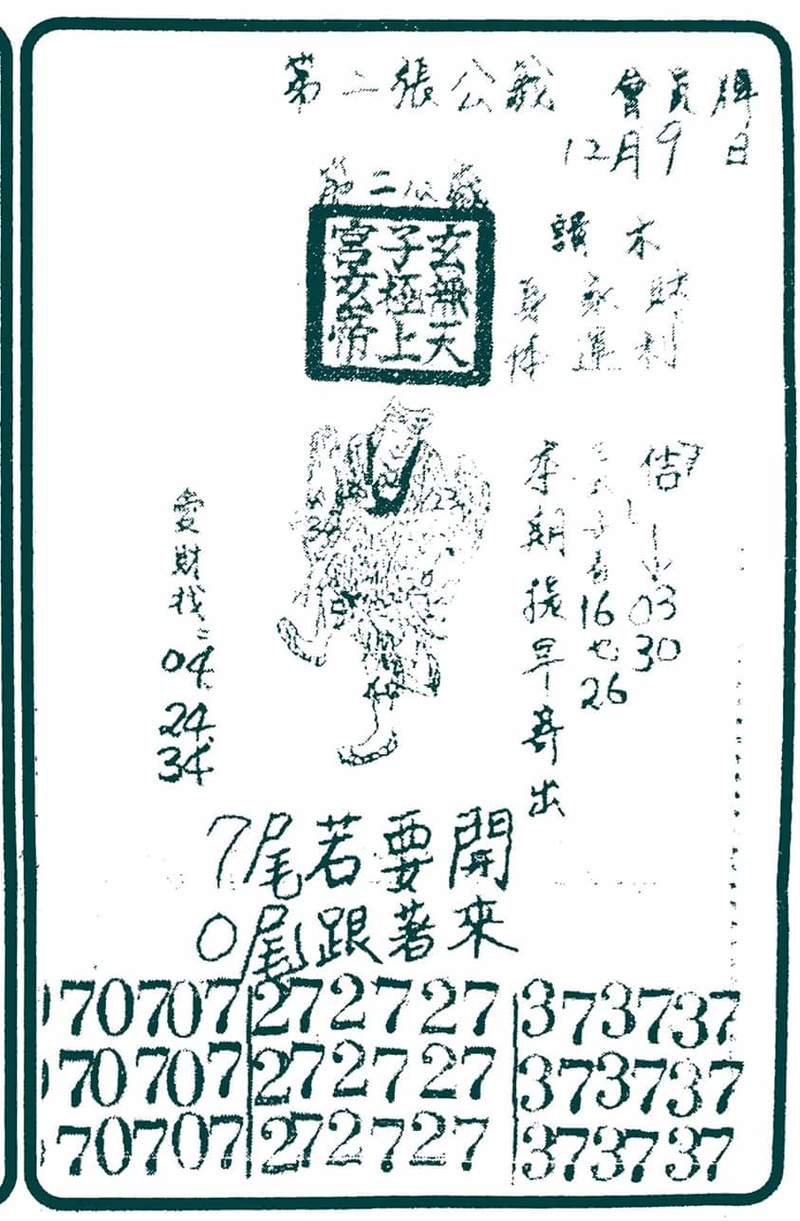 第二張公籤 會員牌
12月9日
第二公籤
玄無天
子極上
宮玄帝
財利
身体
估
03
30
16也26
本期提早寄出
愛財找
04
24
34
7尾若要開
0尾跟著來
070707 272727 373737
070707 272727 373737
070707 272727 373737